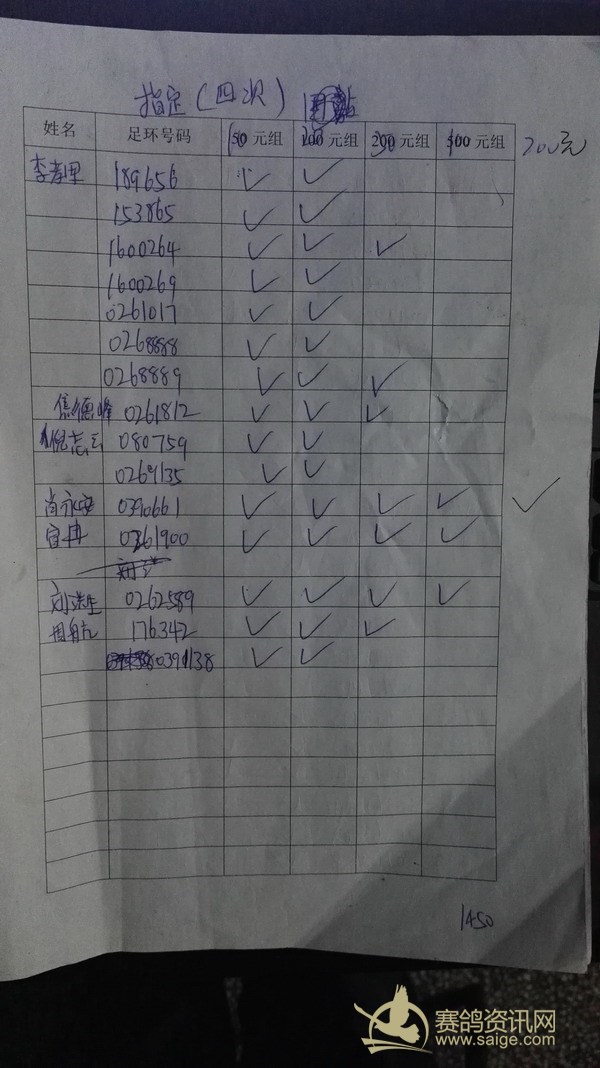 指定(四次)
姓名 足环号码 10元组 30元组 50元组 100元组 200元
李孝里 189656 ✓ ✓
153865 ✓ ✓
1600264 ✓ ✓ ✓
1600269 ✓ ✓
0261017 ✓ ✓
0268888 ✓ ✓
0268889 ✓ ✓ ✓
焦德峰 0261812 ✓ ✓ ✓
倪志 080759 ✓ ✓
0269135 ✓ ✓
肖永安 0390661 ✓ ✓ ✓ ✓ ✓
宜冉 0361900 ✓ ✓ ✓ ✓
刘洪生 0262589 ✓ ✓ ✓ ✓
周 176342 ✓ ✓ ✓
0391138 ✓ ✓
1450
赛鸽资讯网
www.saige.com